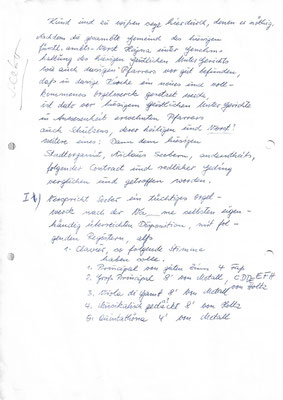 Kund und zu wißen seye hierdurch, denen es nöthig
dachdem die gesambte Gemeind des hiesigen
fürstl. ambts-Dorff Heyna unter Genehm-
haltung des hiesigen geistlichen Unter Gerichts
wie auch dasigen Pfarrers vor gut befunden,
daß in dasige Kirche ein neues und voll-
kommenes Orgelwerck gesetzet werde,
ist dato vor hiesigem geistlichen Unter Gerichte
in Anwesenheit erwehnten Pfarrers
auch Schulzens, derer heiligen und Dorff
eines: Dann dem hiesigen
Stadtorganist, Nicolaus Seeber, anderntheils,
folgender Contract und redlicher
verglichen und getroffen worden.
1.) Verspricht Seeber ein tüchtiges Orgel-
werck nach der selbsten eigen-
händig überreichten Disposition, mit fol-
genden Registern, alß
Clavir, so folgende Stimme
haben solle.
1. Principal von guten Zinn 4 Fuß
2. Grob Principal 8' von Metall C D E F G
3. Viola di Gamba 8' von Metall von Holtz
4. Musikalisch gedackt 8' von Holtz
5. Quintathöna 4' von Metall